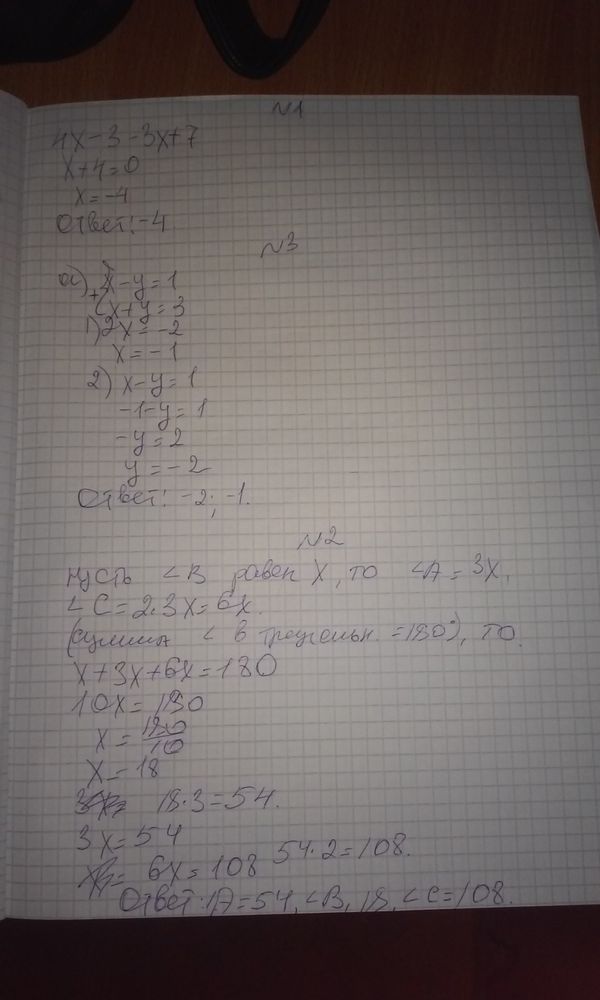 N1
4x-3-3x+7
x+4=0
x=-4
Ответ: -4
N3
а) x-y=1
x+y=3
1) 2x=-2
x=-1
2) x-y=1
-1-y=1
-y=2
y=-2
Ответ: -2; -1.
N2
Пусть ∠B равен X, то ∠A=3x,
∠C=2·3x=6x.
(сумма ∠ в треугельн. =180°), то.
x+3x+6x=180
10x=180
x=180/10
x=18
18·3=54.
3x=54
6x=108 54·2=108.
Ответ: ∠A=54, ∠B, 18, ∠C=108.